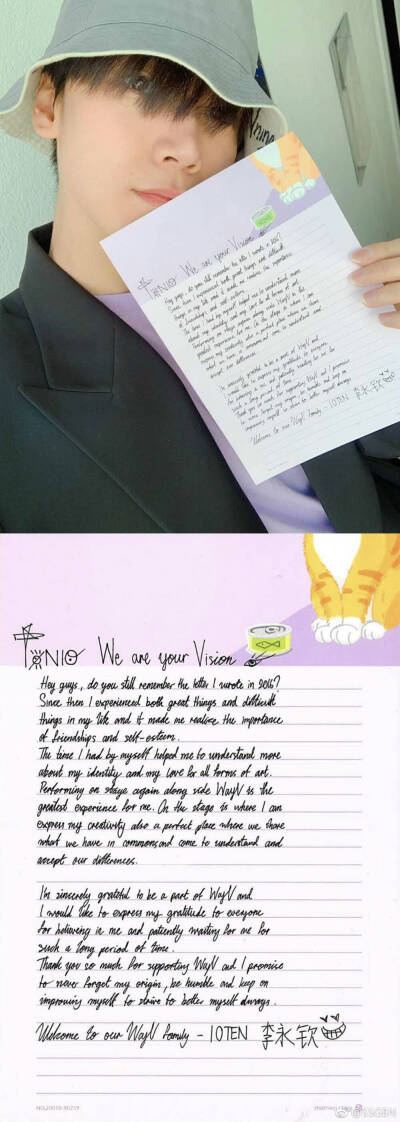 We are your Vision
Hey guys, do you still remember the letter I wrote in 2016?
Since then I experienced both great things and difficult
things in my life and it made me realize the importance
of friendships and self-esteem.
The time I had by myself helped me to understand more
about my identity and my love for all forms of art.
Performing on stage again along side WayV is the
greatest experience for me. On the stage is where I can
express my creativity also a perfect place where we share
what we have in common and come to understand and
accept our differences.
I'm sincerely grateful to be a part of WayV and
I would like to express my gratitude to everyone
for believing in me and patiently waiting for me for
such a long period of time.
Thank you so much for supporting WayV and I promise
to never forget my origin, be humble and keep on
improving myself to strive to better myself always.
Welcome to our WayV family - 10TEN 李永钦